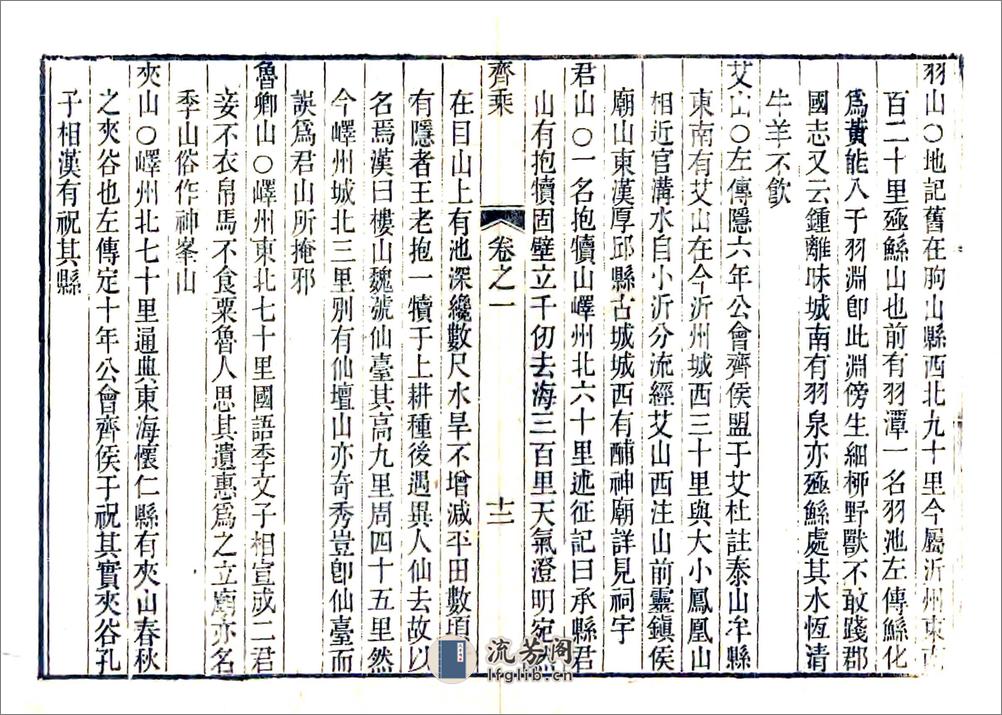 羽山○地記舊在朐山縣西北九十里今屬沂州東南
百二十里殛鯀山也前有羽潭一名羽池左傳鯀化
爲黃能入于羽淵卽此淵傍生細柳野獸不敢踐郡
國志又云鍾離昧城南有羽泉亦殛鯀處其水恆清
牛羊不飲
艾山○左傳隱六年公會齊侯盟于艾杜註泰山牟縣
東南有艾山在今沂州城西三十里與大小鳳凰山
相近官溝水自小沂分流經艾山西注山前靈鎮侯
廟山東漢厚邱縣古城城西有酺神廟詳見祠宇
君山○一名抱犢山嶧州北六十里述征記曰承縣君
山有抱犢固壁立千仞去海三百里天氣澄明宛然
齊乘 卷之一 十二
在目山上有池深纔數尺水旱不增減平田數頃
有隱者王老抱一犢于上耕種後遇異人仙去故以
名焉漢曰樓山魏號仙臺其高九里周四十五里然
今嶧州城北三里別有仙壇山亦奇秀豈卽仙臺而
誤爲君山所掩邪
魯卿山○嶧州東北七十里國語季文子相宣成二君
妾不衣帛馬不食粟魯人思其遺惠爲之立廟亦名
季山俗作神峯山
夾山○嶧州北七十里通典東海懷仁縣有夾山春秋
之夾谷也左傳定十年公會齊侯于祝其實夾谷孔
子相漢有祝其縣
流芳閣
lfglib.cn